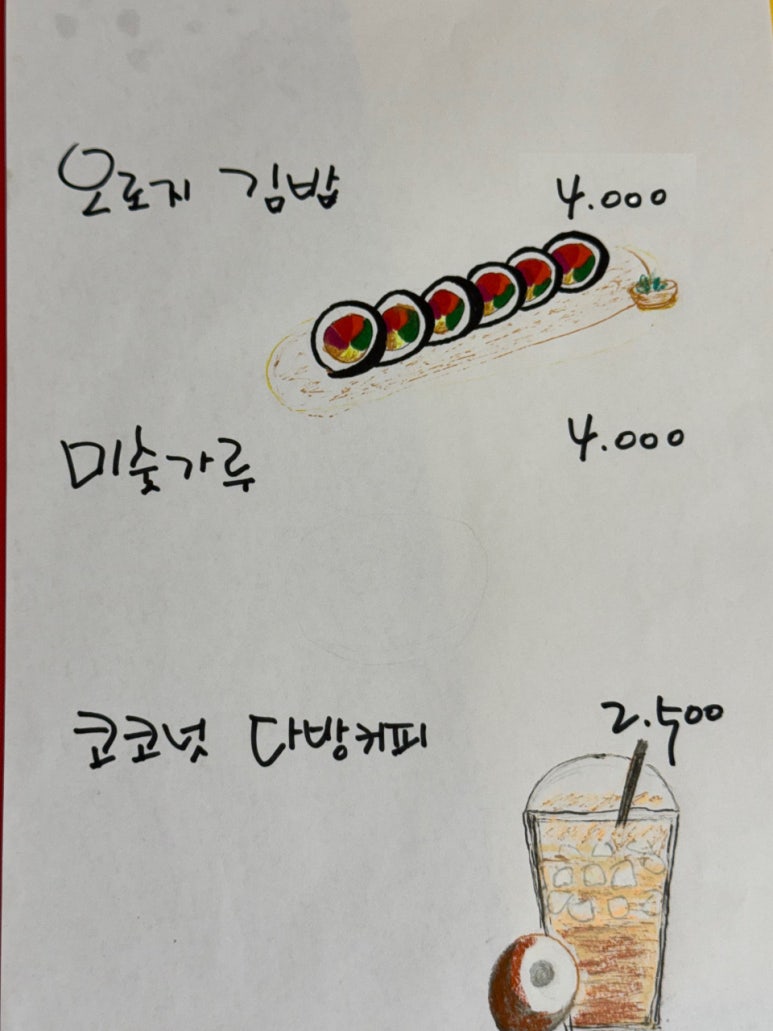 오로지 김밥 4.000
미숫가루 4.000
코코넛 다방커피 2.500